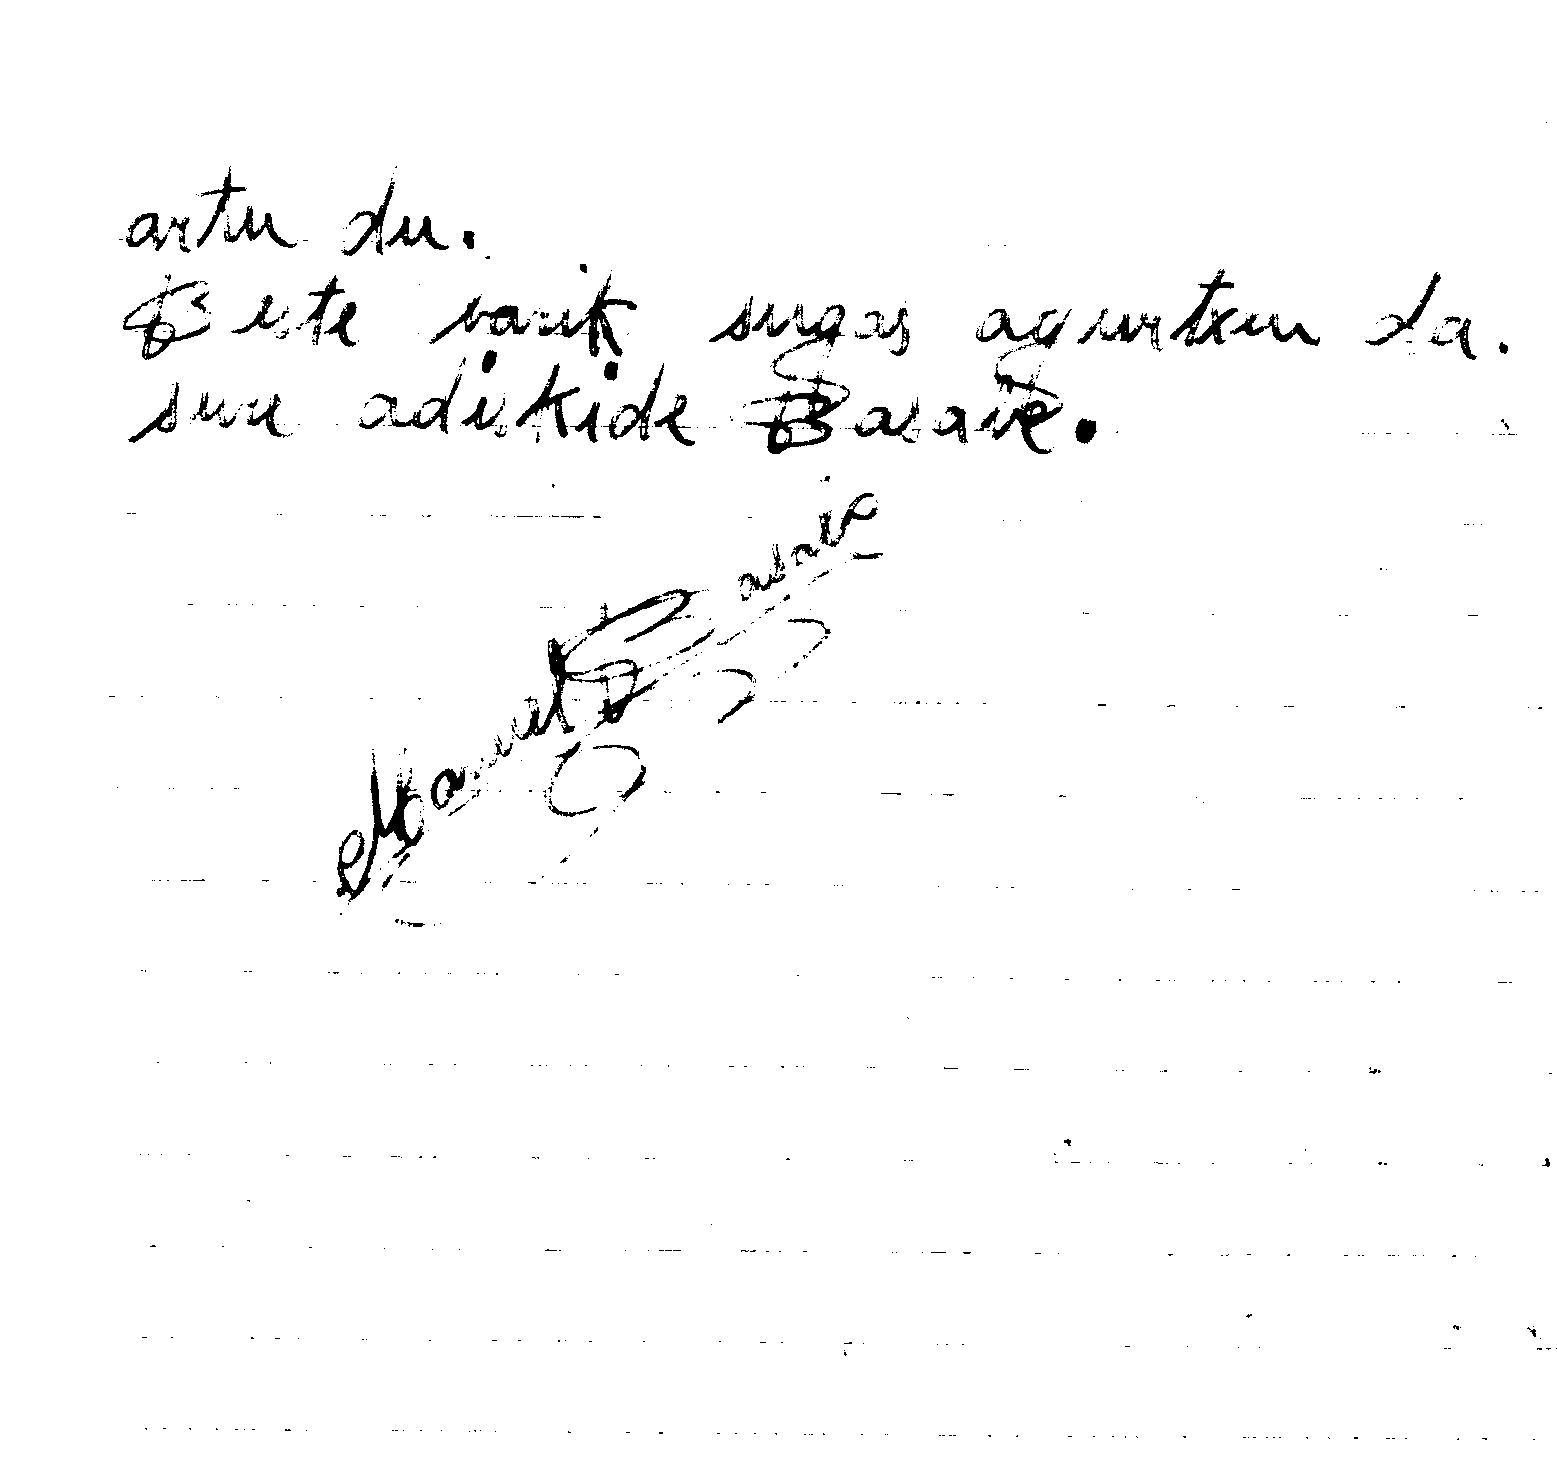 artu du.
Beste barik sugas agurtzen da.
sure adiskide Basave.
Manuel Basave